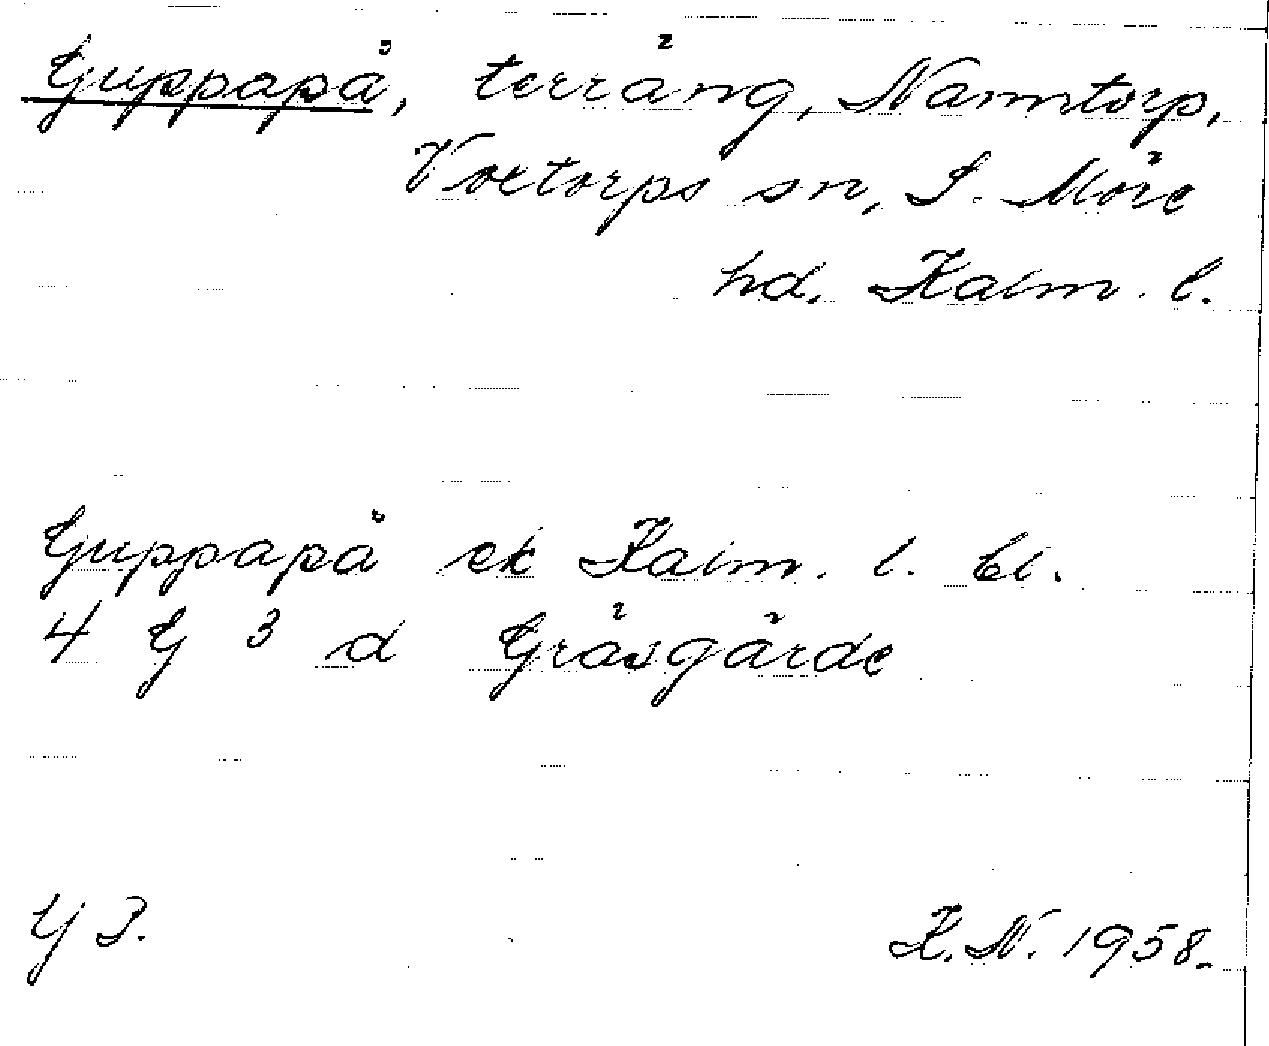 Guppapå, terräng, Namntorp,
Voxtorps sn, S. Möre
hd, Kalm. l.
Guppapå ek Kalm. l. bl.
4 G 3 d Gräsgärde
G 3.
K. N. 1958.